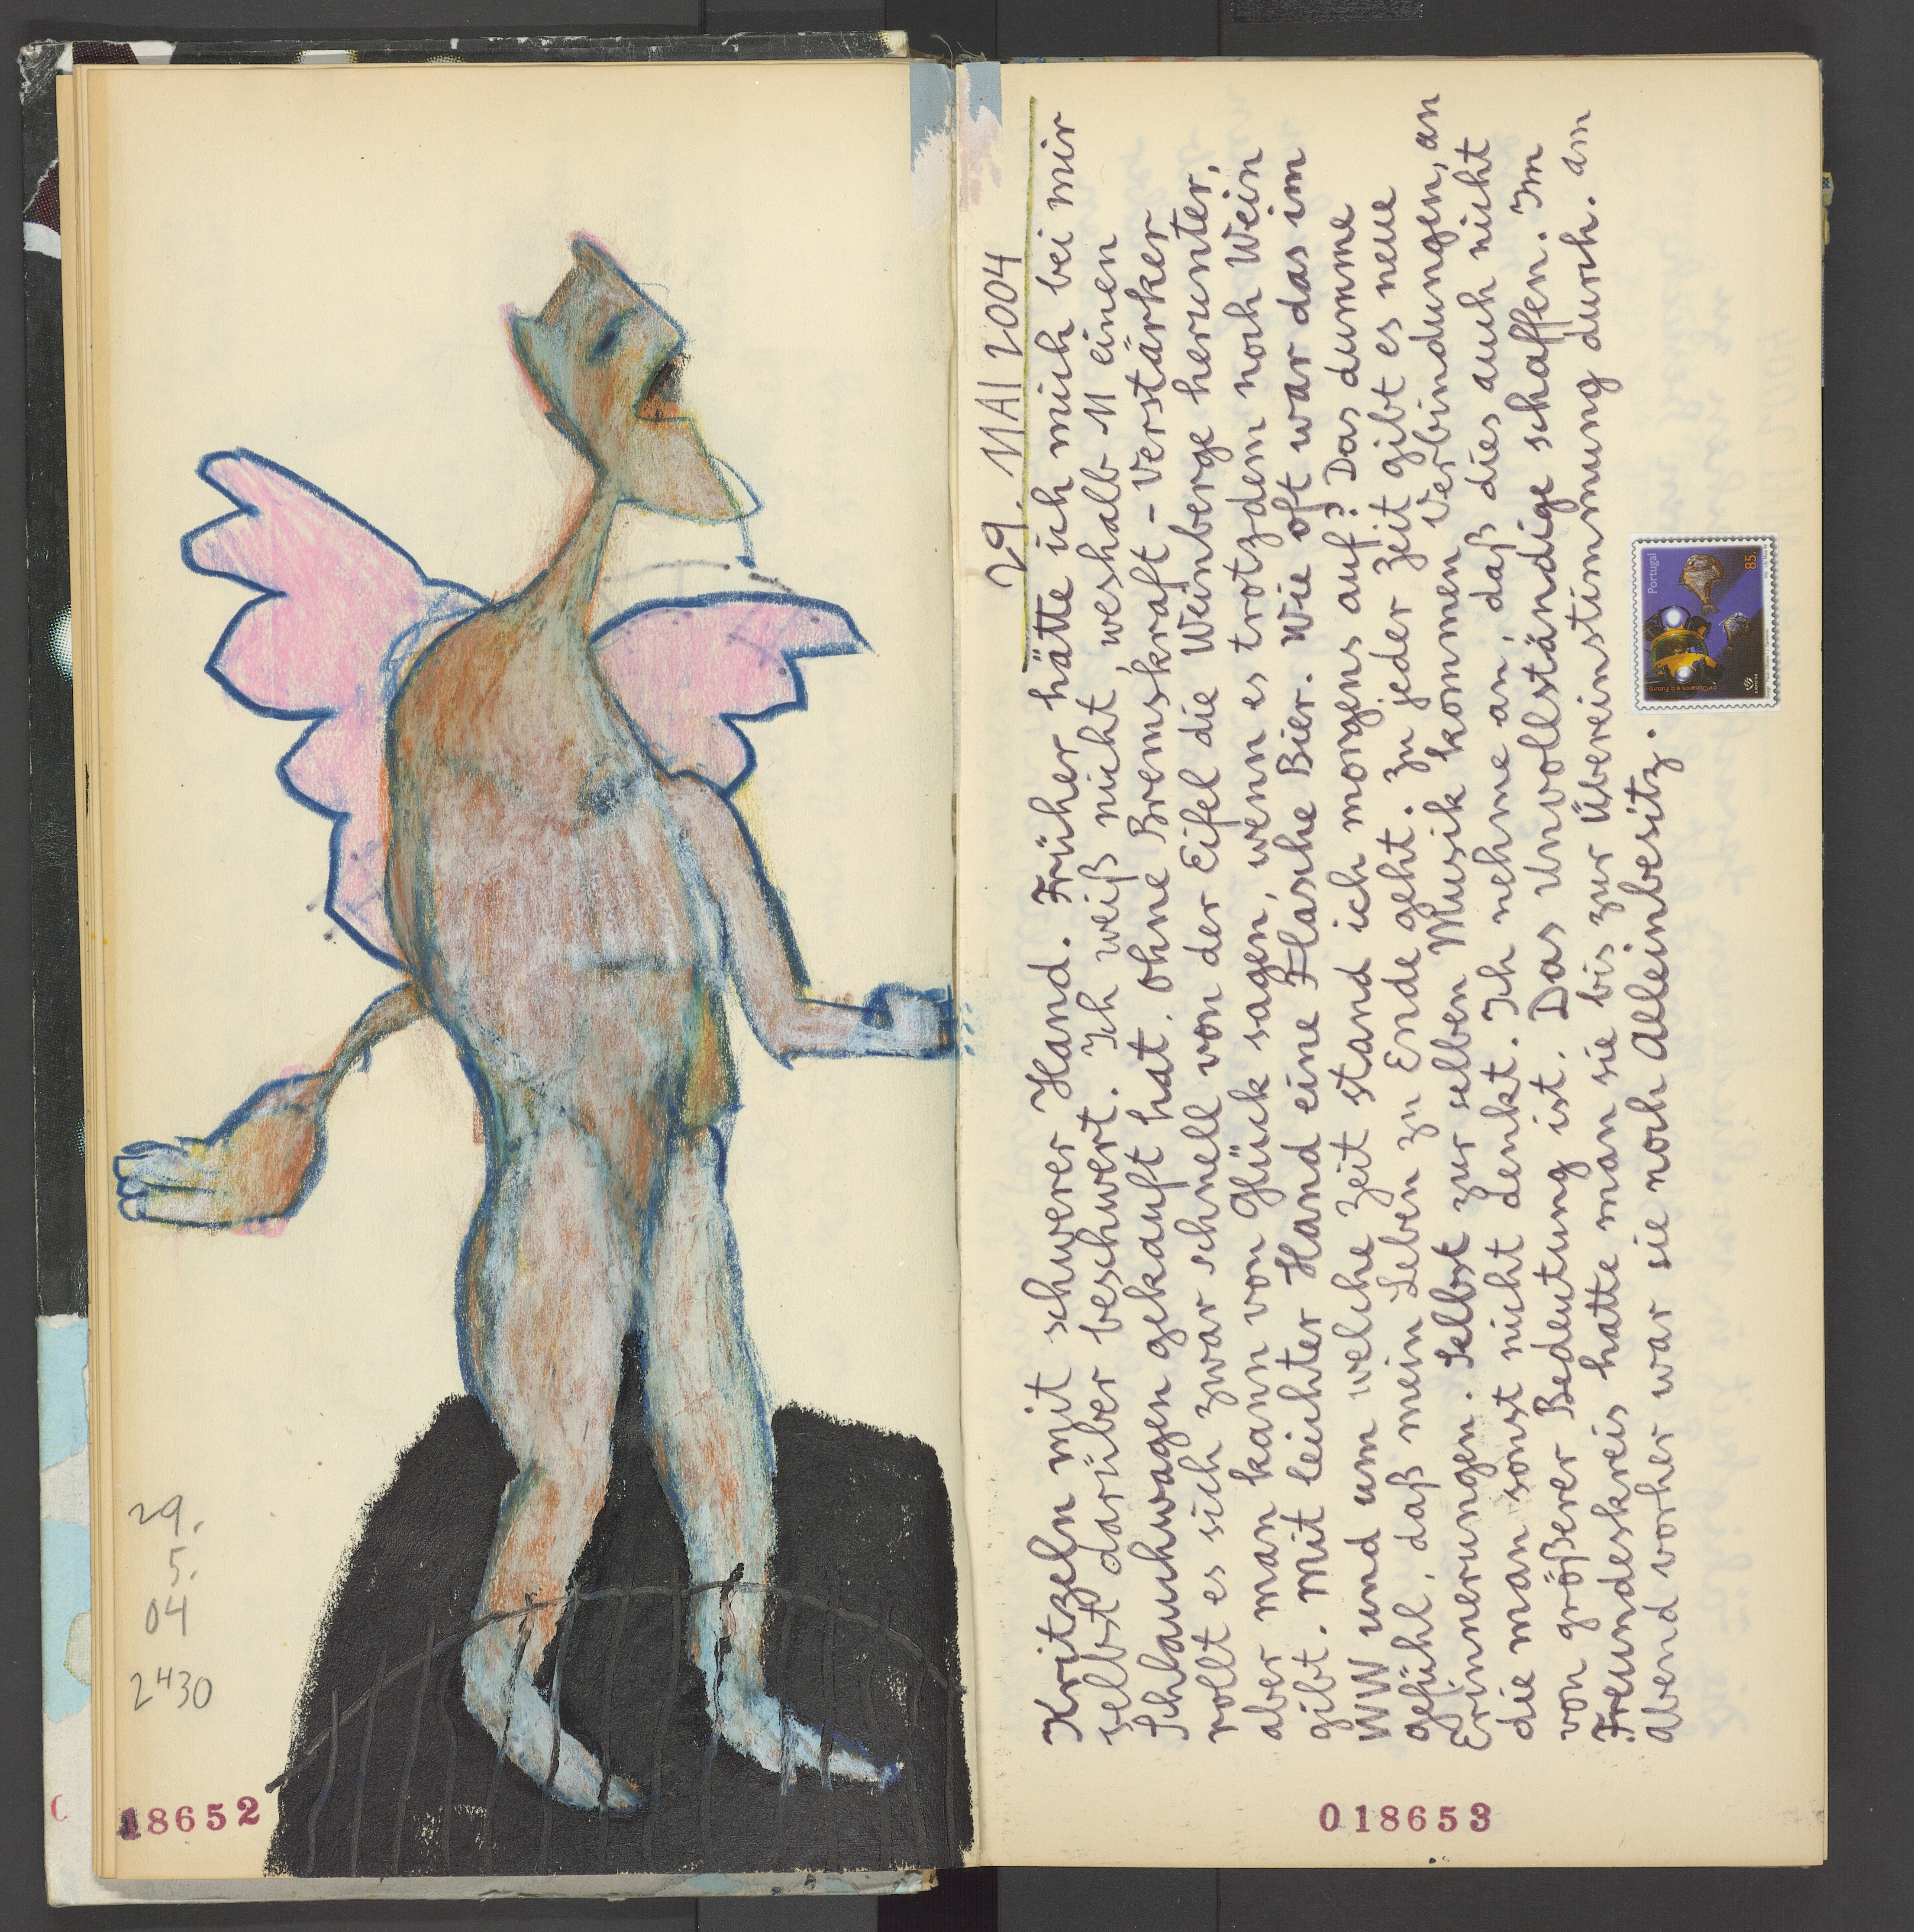 29.
5.
04
2430
18652
29. MAI 2004
Kritzeln mit schwerer Hand. Früher hätte ich mich bei mir
selbst darüber beschwert. Ich weiß nicht, weshalb M einen
Schlauchwagen gekauft hat. Ohne Bremskraft-Verstärker
rollt es sich zwar schnell von der Eifel die Weinberge herunter,
aber man kann von Glück sagen, wenn es trotzdem noch Wein
gibt. Mit leichter Hand eine Flasche Bier. Wie oft war das im
WW und um welche Zeit stand ich morgens auf? Das dumme
Gefühl, daß mein Leben zu Ende geht. Zu jeder Zeit gibt es neue
Erinnerungen. Selbst zur selben Musik kommen Verbindungen, an
die man sonst nicht denkt. Ich nehme an, daß dies auch nicht
von größerer Bedeutung ist. Das Unvollständige schaffen. Im
Freundeskreis hatte man sie bis zur Übereinstimmung durch. Am
Abend vorher war sie noch Alleinbesitz.
Portugal
85.
018653